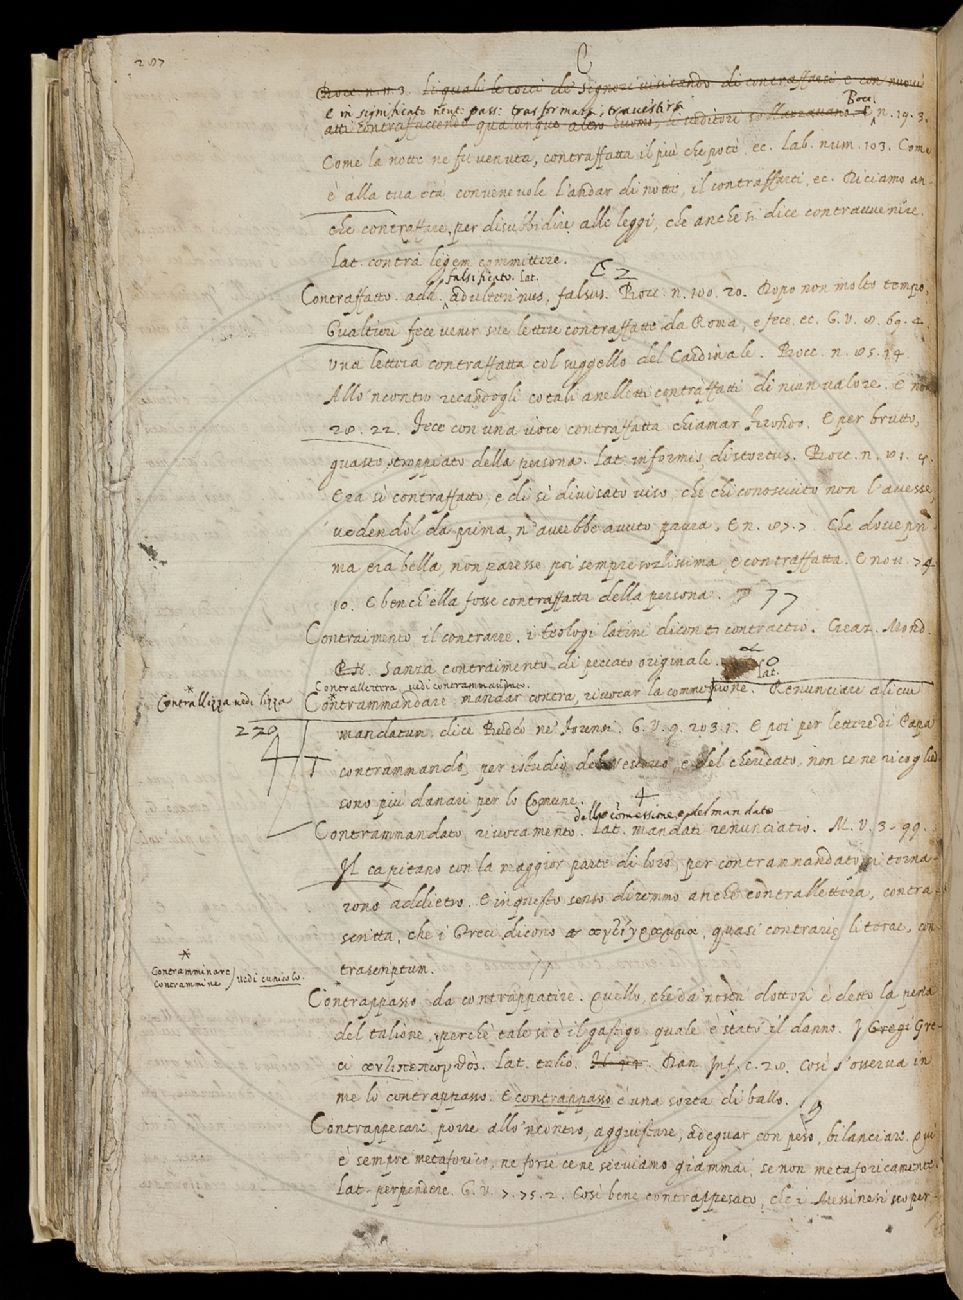 287
C
Bocc. n. 3. li quali le voci de' signori visitando di contraffare e con nuovi
E in significato neut: pass: trasformarsi, travestirsi
Bocc.
atti contraffacendo qualunque altro huomo, n. 19. 3.
Come la notte ne fu venuta, contraffatta il più che potè, ec. Lab. num. 103. Come
è alla tua età convenevole l'andar di notte, il contraffarti, ec. Diciamo an-
che contraffare, per disubbidire alle leggi, che anche si dice contravvenire.
Lat. contra legem committere.
falsificato. Lat.
C 2
Contraffatto. add. adulterinus, falsus. Bocc. n. 100. 20. Dopo non molto tempo,
Gualtieri fece venir sue lettere contraffatte da Roma, e fece. ec. G. V. 8. 69. 4.
una lettera contraffatta col suggello del Cardinale. Bocc. n. 85. 14.
All'oncontro recandogli cotali anelletti contraffatti di niun valore. E nov.
28. 22. Fece con una voce contraffatta chiamar Ferondo. E per brutto,
guasto, stroppiato della persona. Lat. informis, distortus. Bocc. n. 81. 4.
Era sì contraffatto, e di sì divisato viso, che chi conosciuto non l'avesse
vedendol da prima, n'avrebbe avuto paura. E n. 87. 7. Che dove pri-
ma era bella, non paresse poi sempre sozzissima, e contraffatta. E nov. 79.
10. E bench'ella fosse contraffatta della persona. 77
Contraimento il contrarre. i teologi latini dicono contractio. Creaz. Mond.
Sanza contraimento di peccato originale.
Contrallettera vedi contrammandato.
Lat.
Contrallizza vedi lizza
Contrammandare mandar contra, rivocar la commessione. Renunciare alicui
220
mandatum. dice Budeo ne' Forensi. G. V. 9. 203. 1. E poi per lettere di Papa
contrammandò, per istudio del Vescovo e del chericato, non se ne ricoglies-
sono più danari per lo Comune.
della comessione, e del mandato
Contrammandato, rivocamento. Lat. mandati renunciatio. M. V. 3. 99.
Il capitano con la maggior parte di loro, per contrammandato ritorna-
rono addietro. E in questo senso diremmo anche contrallettera, contra-
scritta, che i Greci dicono ἀντίγραμμα, quasi contrarie litterae, con-
trascriptum.
Contramminare
Contrammine } vedi cunicolo.
Contrappasso da contrappatire. Quello, che da' nostri dottori è detto la pena
del talione, perchè tale si è il gastigo quale è stato il danno. I Gregi Gre-
ci ἀντιπεπονθός. Lat. talio. Dan. Inf. c. 28. Così s'osserva in
me lo contrappasso. E contrappasso è una sorta di ballo.
Contrappesare, porre all'oncontro, aggiustare, adeguar con peso, bilanciare. Qui
è sempre metaforico, nè forse ce ne serviamo giammai, se non metaforicamente.
Lat. perpendere. G. V. 7. 75. 2. Così bene contrappesato, che i Messinesi scoper-